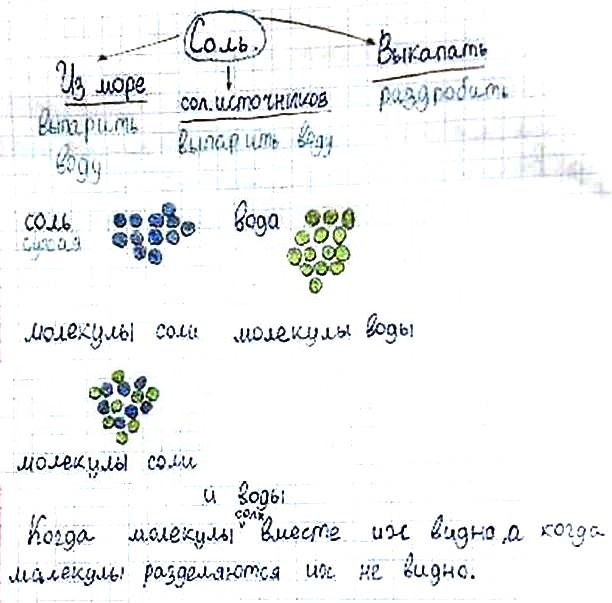 Соль.
Из море
выпарить
воду
сол.источников
выпарить воду
Выкапать
раздробить
соль
сухая
вода
молекулы соли
молекулы воды
молекулы соли
и воды
соли
Когда молекулы вместе их видно, а когда
малекулы разделяются их не видно.